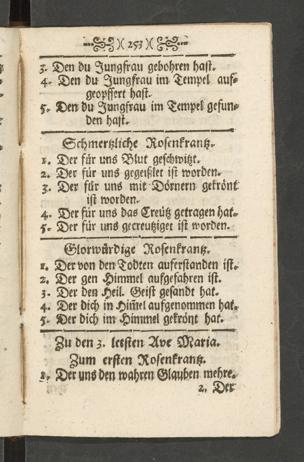 )( 253 )(
3. Den du Jungfrau gebohren hast.
4. Den du Jungfrau im Tempel auf-
geopffert hast.
5. Den du Jungfrau im Tempel gefun-
den hast.
Schmertzliche Rosenkrantz.
1. Der für uns Blut geschwitzt.
2. Der für uns gegeißlet ist worden.
3. Der für uns mit Dörnern gekrönt
ist worden.
4. Der für uns das Creütz getragen hat.
5. Der für uns gecreutziget ist worden.
Glorwürdige Rosenkrantz.
1. Der von den Todten auferstanden ist.
2. Der gen Himmel aufgefahren ist.
3. Der den Heil. Geist gesandt hat.
4. Der dich in Him̃el aufgenommen hat.
5. Der dich im Himmel gekrönt hat.
Zu den 3. letsten Ave Maria.
Zum ersten Rosenkrantz.
1. Der uns den wahren Glauben mehre.
2. Der